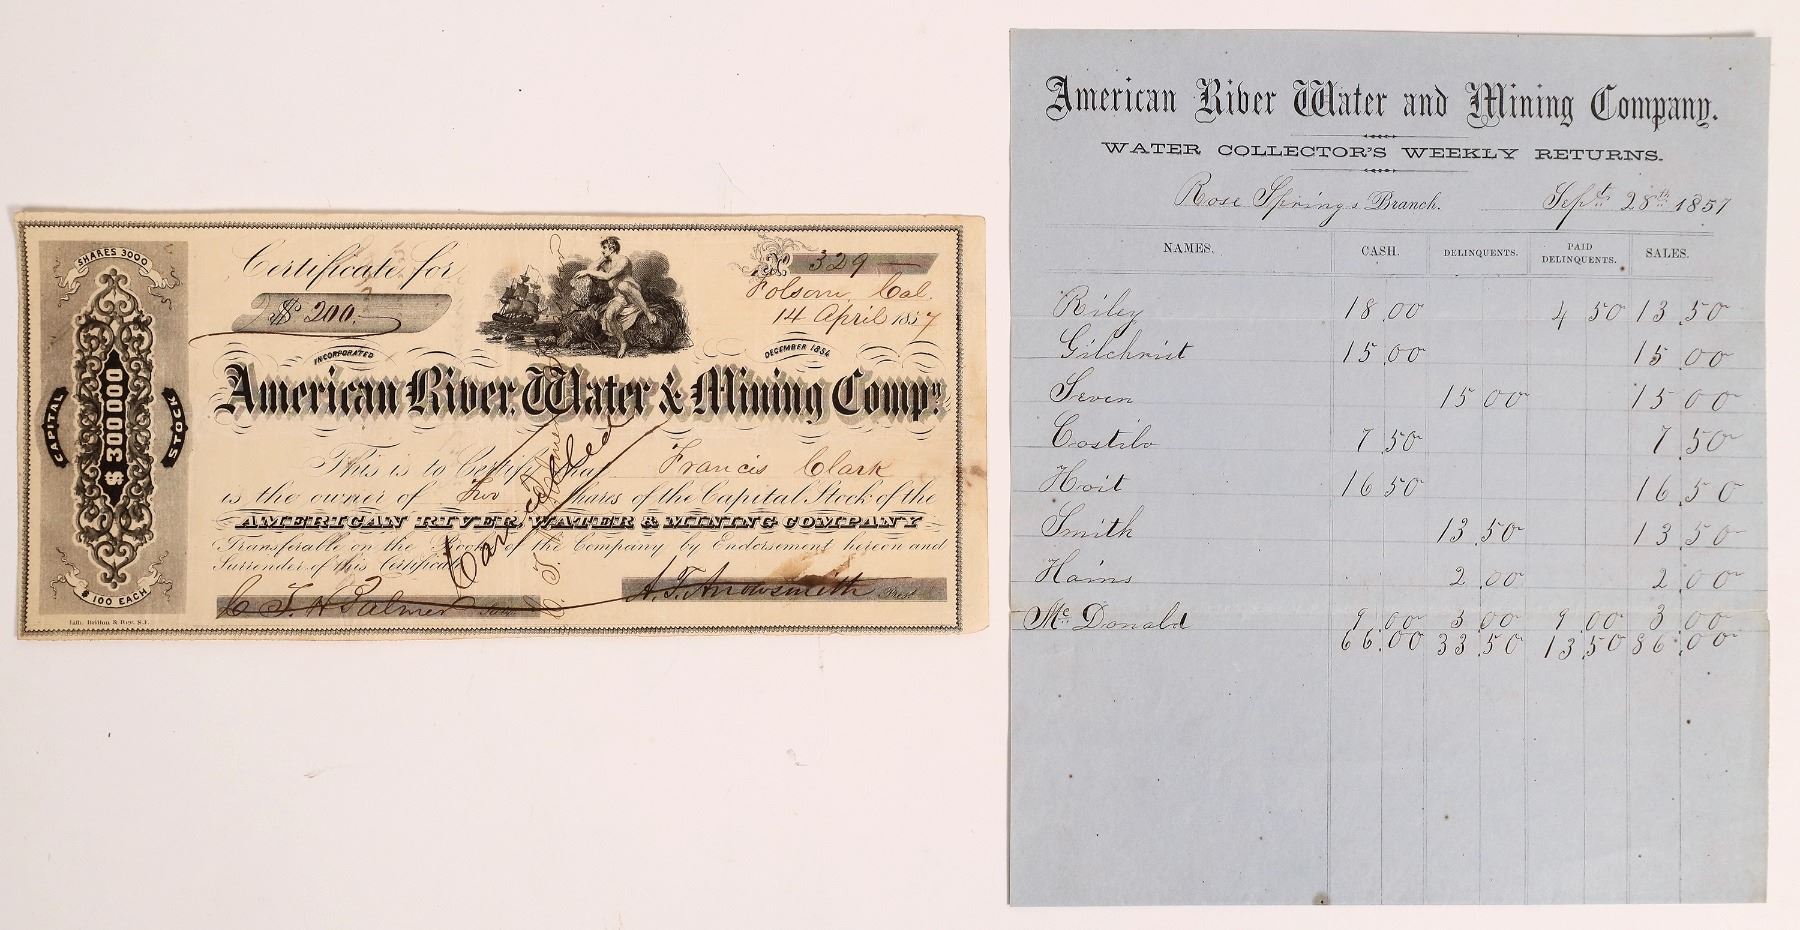 SHARES 3000
CAPITAL
$ 300000
STOCK
$ 100 EACH
Lith. Britton & Rey. S.F.
Certificate for
$ 200.
No 329
Folsom, Cal.
14 April 1857
INCORPORATED
DECEMBER 1854
American River, Water & Mining Compy.
This is to Certify that Francis Clark
is the owner of Two Shares of the Capital Stock of the
AMERICAN RIVER, WATER & MINING COMPANY
Transferable on the Books of the Company by Endorsement hereon and
Surrender of this Certificate
Cancelled
C. T. H. Palmer
A. T. Arrowsmith Prest
American River Water and Mining Company.
WATER COLLECTOR'S WEEKLY RETURNS.
Rose Springs Branch. Sept. 28th 1857
NAMES. CASH. DELINQUENTS. PAID DELINQUENTS. SALES.
Riley 18.00 4 50 13.50
Gilchrist 15.00 15.00
Seven 15 00 15 00
Costilo 7.50 7.50
Hoit 16 50 16.50
Smith 13.50 13.50
Hains 2.00 2.00
Mc Donald 9.00 3.00 9.00 3.00
66.00 33.50 13.50 86.00